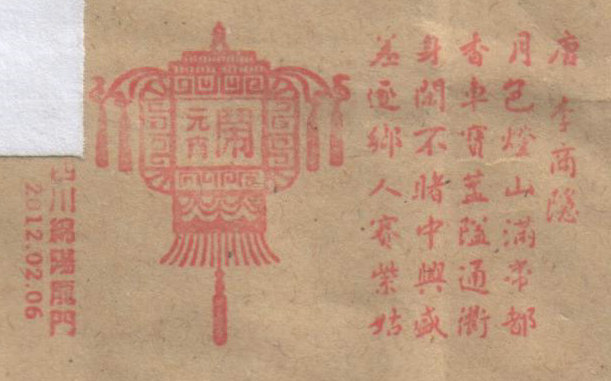 唐 李商隱
月色燈山滿帝都
香車寶蓋隘通衢
身閑不睹中興盛
羞逐鄉人賽紫姑
鬧
元宵
川綿陽龍門
2012.02.06